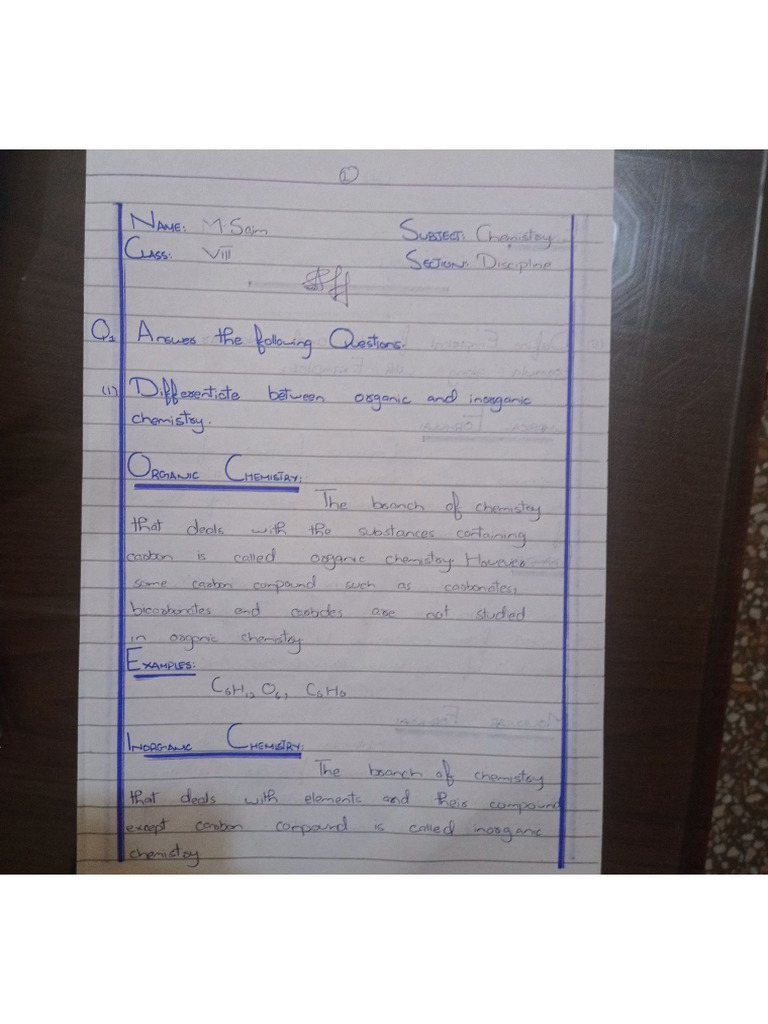 1
NAME: M.Sam SUBJECT: Chemistry
CLASS: VIII SECTION: Discipline
Q1 Answer the following Questions.
(1) Differentiate between organic and inorganic
chemistry.
ORGANIC CHEMISTRY:
The branch of chemistry
that deals with the substances containing
carbon is called organic chemistry. However
some carbon compound such as carbonates,
bicarbonates and carbides are not studied
in organic chemistry
EXAMPLES:
C6H12O6,
INORGANIC CHEMISTRY:
The branch of chemistry
that deals with elements and their compound
except carbon compound is called inorganic
chemistry